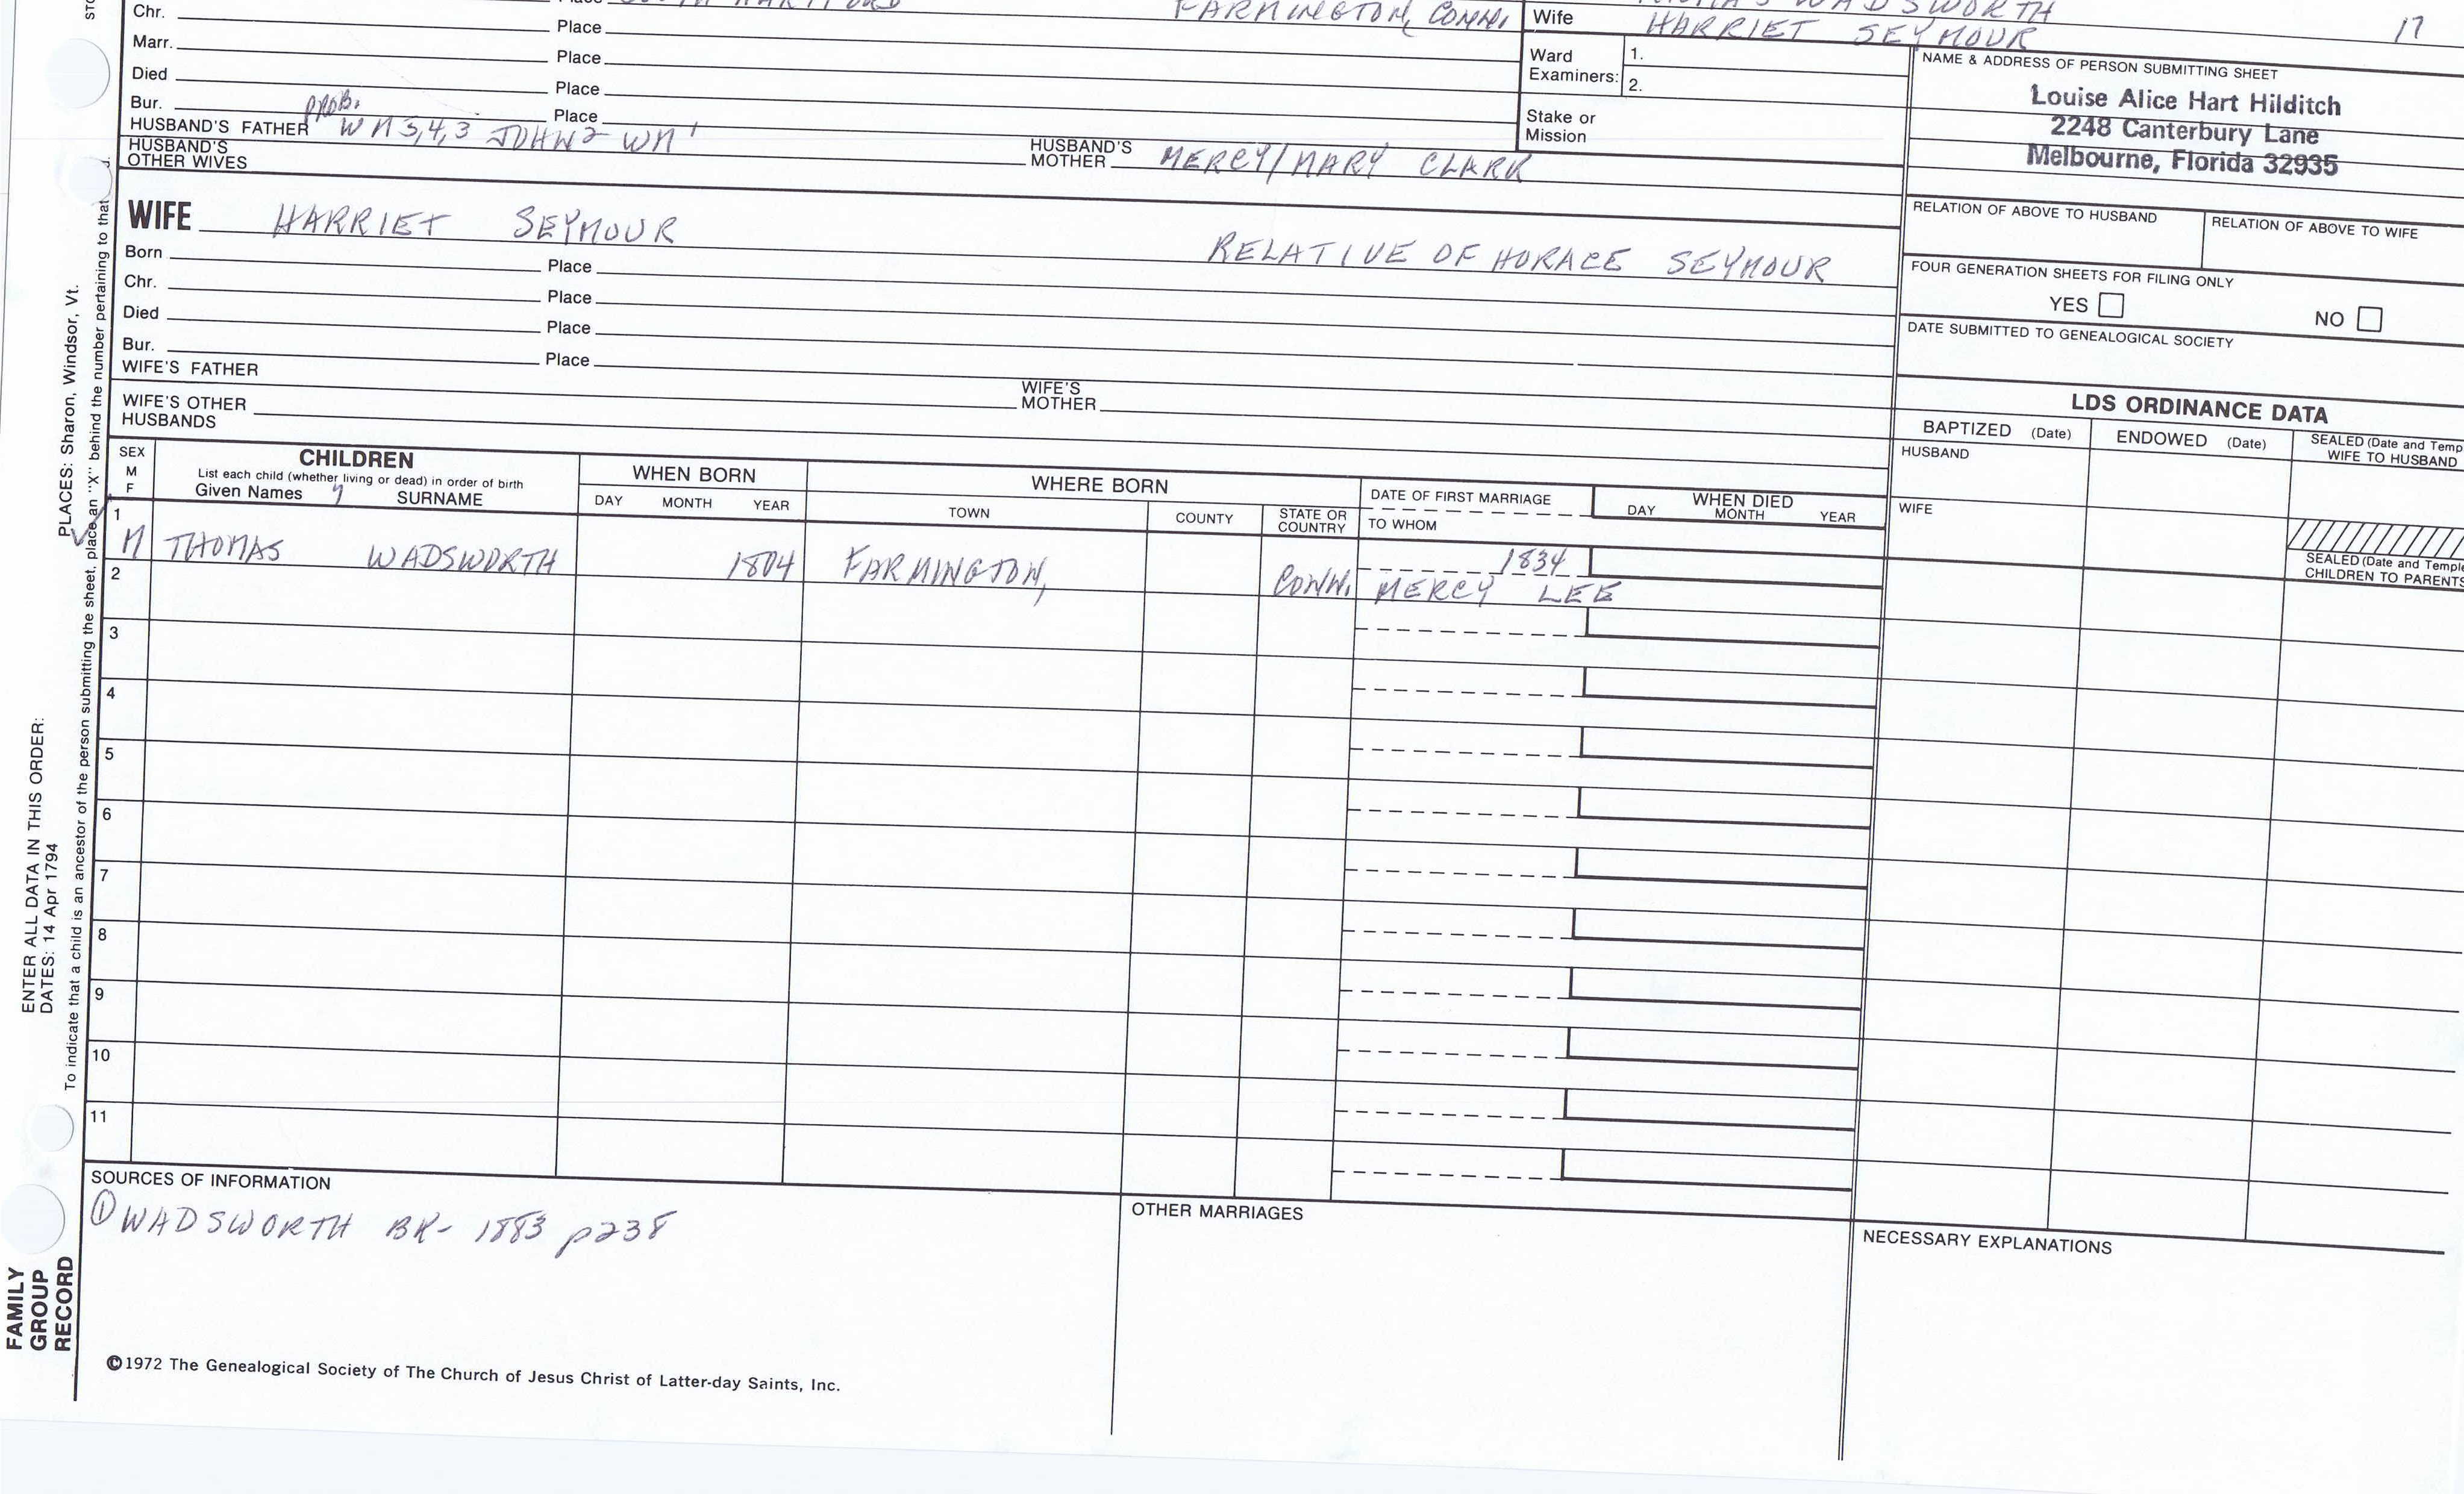 FARMINGTON, CONN.
WADSWORTH
Chr. Place
Wife HARRIET SEYMOUR 17
Marr. Place
Ward Examiners: 1. 2.
NAME & ADDRESS OF PERSON SUBMITTING SHEET
Died Place
Louise Alice Hart Hilditch
Bur. Place
2248 Canterbury Lane
Stake or Mission
Melbourne, Florida 32935
PROB.
HUSBAND'S FATHER WM 5,4,3 JOHN2 WM1
HUSBAND'S MOTHER MERCY/MARY CLARK
HUSBAND'S OTHER WIVES
WIFE HARRIET SEYMOUR RELATIVE OF HORACE SEYMOUR
RELATION OF ABOVE TO HUSBAND RELATION OF ABOVE TO WIFE
Born Place
Chr. Place
FOUR GENERATION SHEETS FOR FILING ONLY
YES NO
Died Place
DATE SUBMITTED TO GENEALOGICAL SOCIETY
Bur. Place
WIFE'S FATHER WIFE'S MOTHER
WIFE'S OTHER HUSBANDS
LDS ORDINANCE DATA
BAPTIZED (Date) ENDOWED (Date) SEALED (Date and Temp
WIFE TO HUSBAND
HUSBAND
SEX M F
CHILDREN
List each child (whether living or dead) in order of birth
Given Names SURNAME
WHEN BORN
DAY MONTH YEAR
WHERE BORN
TOWN COUNTY STATE OR COUNTRY
DATE OF FIRST MARRIAGE
TO WHOM
WHEN DIED
DAY MONTH YEAR
WIFE
SEALED (Date and Temple
CHILDREN TO PARENTS
1
M THOMAS WADSWORTH 1804 FARMINGTON, CONN. 1834
MERCY LEE
2
3
4
5
6
7
8
9
10
11
SOURCES OF INFORMATION
① WADSWORTH BK- 1883 p238
OTHER MARRIAGES
NECESSARY EXPLANATIONS
©1972 The Genealogical Society of The Church of Jesus Christ of Latter-day Saints, Inc.
FAMILY
GROUP
RECORD
ENTER ALL DATA IN THIS ORDER:
DATES: 14 Apr 1794
PLACES: Sharon, Windsor, Vt.
To indicate that a child is an ancestor of the person submitting the sheet, place an "X" behind the number pertaining to that